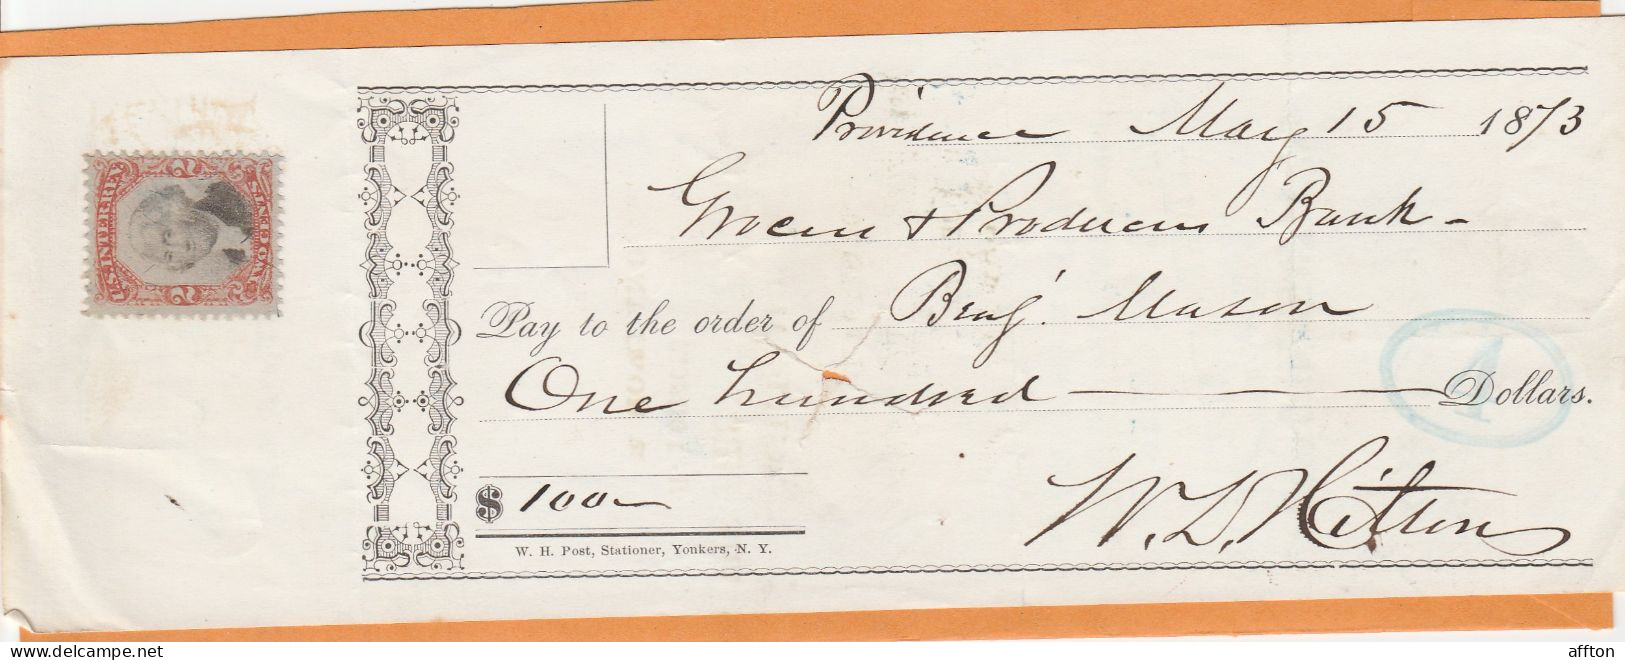 Providence May 15 1873
Grocers & Producers Bank -
Pay to the order of Benj. Mason
One hundred Dollars.
1
$ 100
W. D. Hilton
W. H. Post, Stationer, Yonkers, N. Y.
U.S. INTER. REV.
2 CENTS 2
delcampe.net
affton